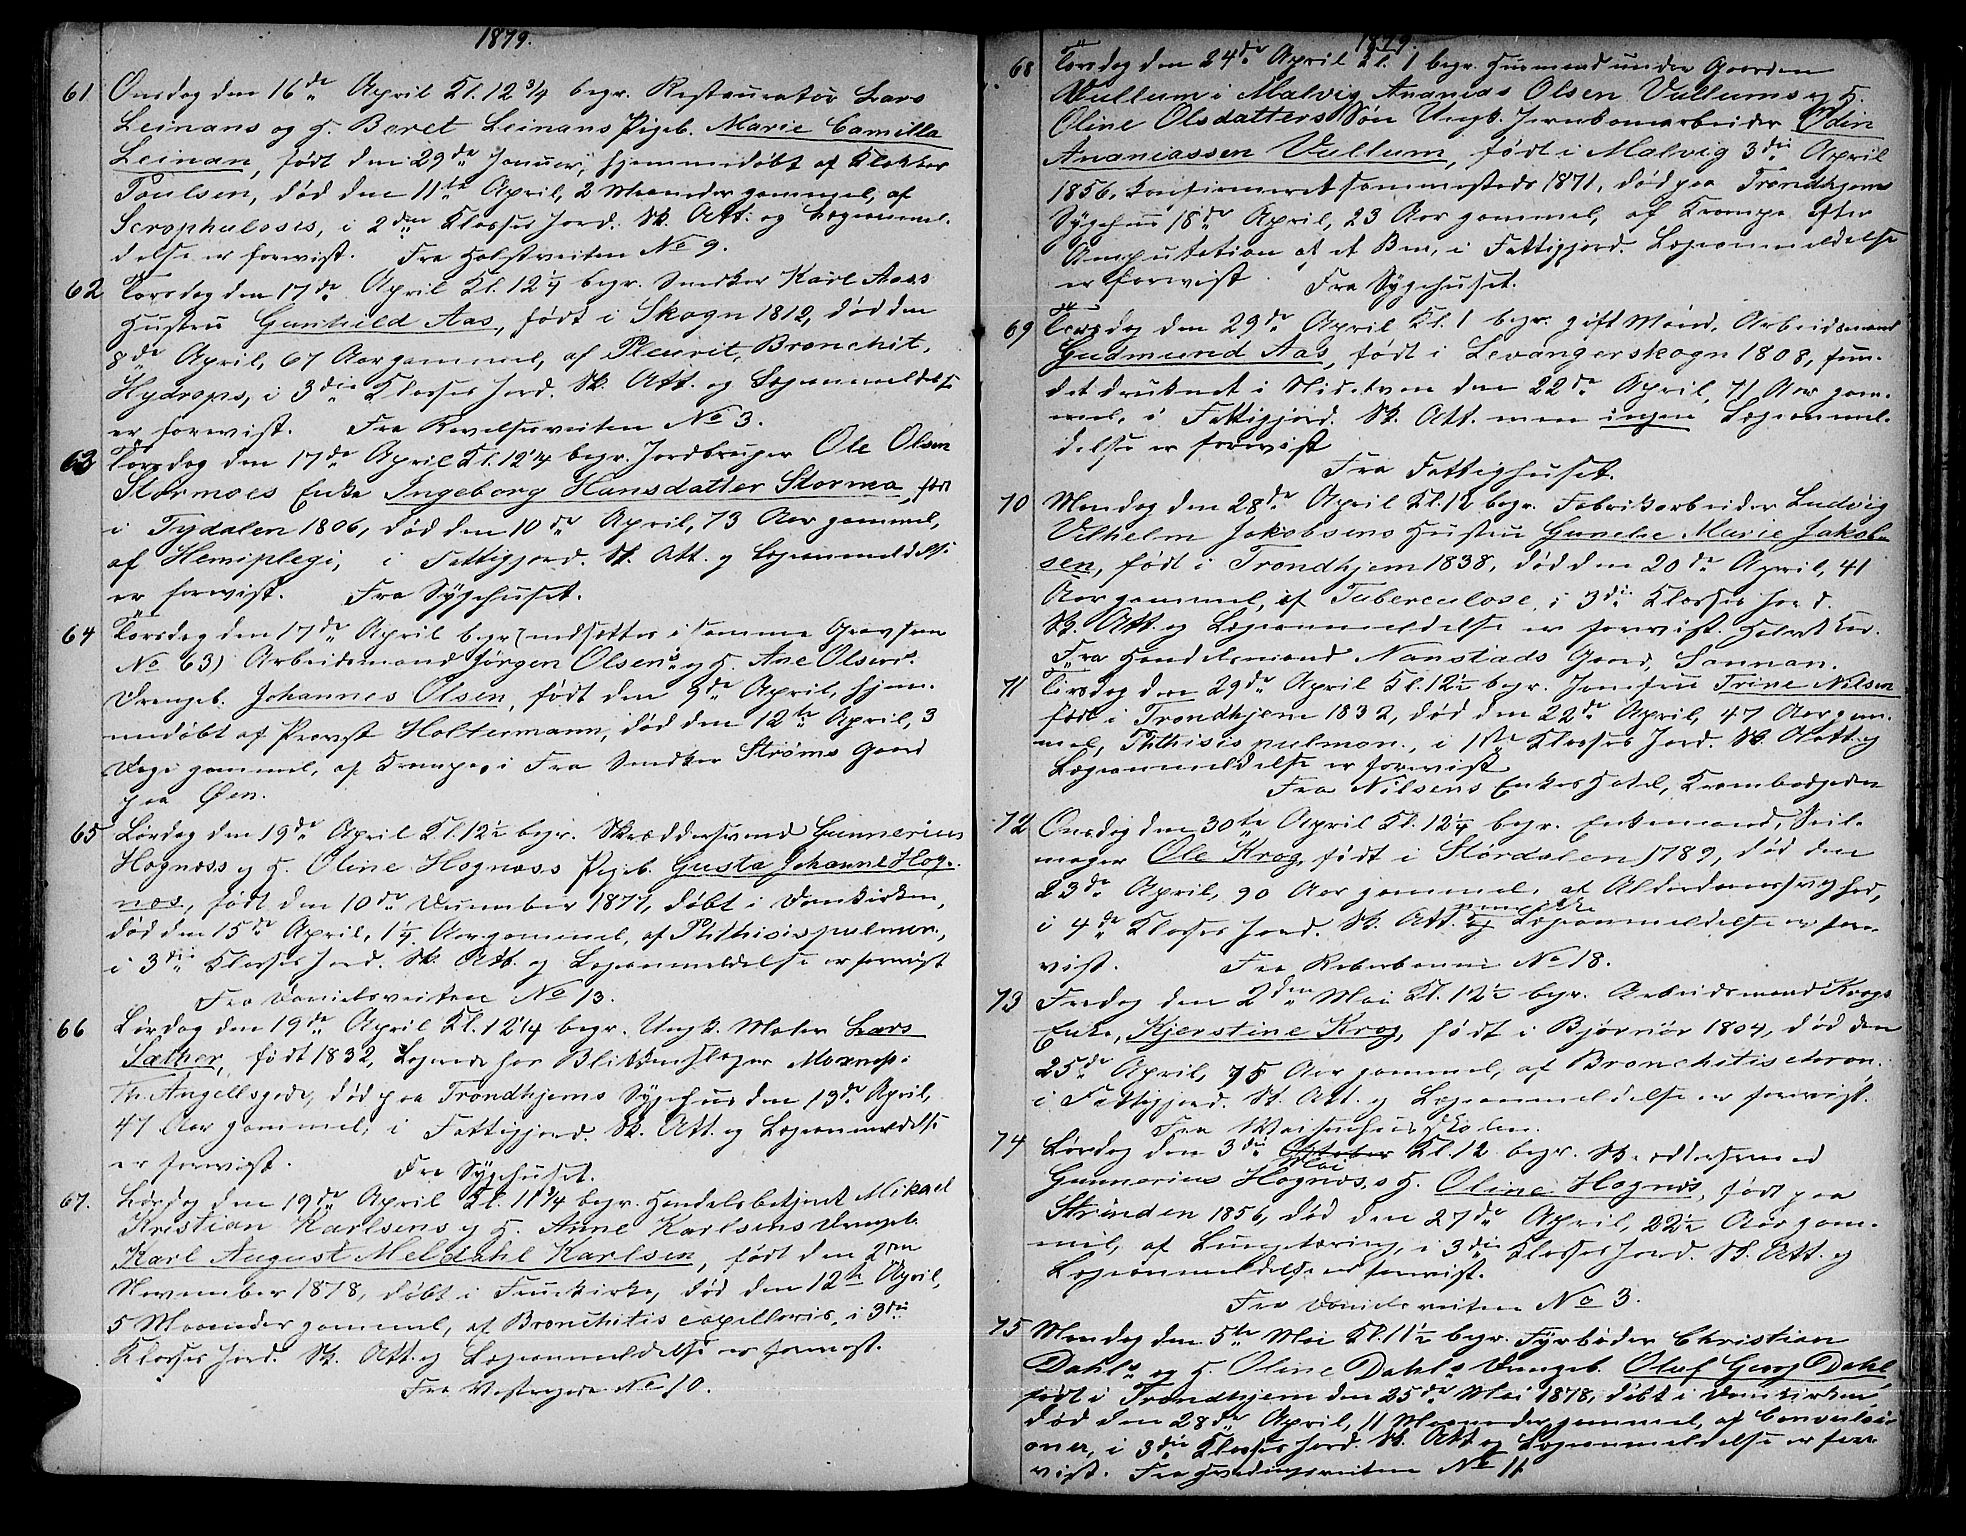 1879.
61 Onsdag den 16de April Kl. 12 3/4 begr. Restauratør Lars
Leinans og H. Beret Leinans Pigeb. Marie Camilla
Leinan, født den 29de Januar, hjemmedøbt af Klokker
Poulsen, død den 11te April, 2 Maaneder gammel, af
Scrophulosis, i 2den Klasses Jord. Sk. Att. og Lægeanmel-
delse er forevist. Fra Holstveiten No 9.
62 Torsdag den 17de April Kl. 12 1/4 begr. Snedker Karl Aass
Hustru Gunhild Aas, født i Skogn 1812, død den
8de April, 67 Aar gammel, af Pleurit, Bronchit,
Hydrops, i 3die Klasses Jord. Sk. Att. og Lægeanmeldelse
er forevist. Fra Revelsveiten No 3.
63 Torsdag den 17de April Kl. 12 1/4 begr. Jordbruger Ole Olsen
Stormoes Enke Ingeborg Hansdatter Stormo, født
i Tydalen 1806, død den 10de April, 73 Aar gammel,
af Hemiplegi, i Fattigjord. Sk. Att. og Lægeanmeldelse
er forevist. Fra Sygehuset.
64 Torsdag den 17de April begr. (nedsattes i samme Grav som
No 63) Arbeidsmand Jørgen Olsens og H. Ane Olsens
Drengeb. Johannes Olsen, født den 9de April, hjem-
medøbt af Provst Holtermann, død den 12te April, 3
Dage gammel, af Krampe, i Fra Snedker Strøms Gaard
paa Øen.
65 Lørdag den 19de April Kl. 12 1/2 begr. Skræddersvend Gunnerius
Hognæss og H. Oline Hognæss Pigeb. Gusta Johanne Hog-
næs, født den 10de December 1877, døbt i Domkirken,
død den 15de April, 1 1/4 Aar gammel, af Phthisis pulmon.,
i 3die Klasses Jord. Sk. Att. og Lægeanmeldelse er forevist
Fra Danielsveiten No 13.
66 Lørdag den 19de April Kl. 12 1/4 begr. Ungk. Maler Lars
Sæther, født 1832, Logerede hos Blikkenslager Moxnes i
Th. Angellsgade, død paa Trondhjems Sygehus den 13de April,
47 Aar gammel, i Fattigjord. Sk. Att. og Lægeanmeldelse
er forevist. Fra Sygehuset.
67. Lørdag den 19de April Kl. 11 3/4 begr. Handelsbetjent Mikael
Kristian Karlsens og H. Anne Karlsens Drengeb.
Karl August Meldahl Karlsen, født den 2den
November 1878, døbt i Fruekirke, død den 12te April,
5 Maaneder gammel, af Bronchitis capillaris, i 3die
Klasses Jord. Sk. Att. og Lægeanmeldelse er forevist.
Fra Vestregade No 10.
1879.
68 Torsdag den 24de April Kl. 1 begr. Husmand under Gaarden
Vullum i Malvig Ananias Olsen Vullums og H.
Oline Olsdatters Søn Ungk. Jernbanearbeider Odin
Ananiassen Vullum, født i Malvig 3die April
1856, konfirmeret sammesteds 1871, død paa Trondhjems
Sygehus 18de April, 23 Aar gammel, af Krampe efter
Amputation af et Ben, i Fattigjord. Lægeanmeldelse
er forevist Fra Sygehuset.
69 Tirsdag den 29de April Kl. 1 begr. gift Mand, Arbeidsmand
Gudmund Aas, født i Levangerskogn 1808, fun-
det druknet i Nidelven den 22de April, 71 Aar gam-
mel, i Fattigjord. Sk. Att. men ingen Lægeanmel-
delse er forevist
Fra Fattighuset.
70 Mandag den 28de April Kl. 12 begr. Fabrikarbeider Ludvig
Vilhelm Jakobsens Hustru Gunelie Marie Jakob-
sen, født i Trondhjem 1838, død den 20de April, 41
Aar gammel, af Tuberculose, i 3die Klasses Jord.
Sk. Att. og Lægeanmeldelse er forevist.
Fra Handelsmand Nanstads Gaard, Sannan.
71 Tirsdag den 29de April Kl. 12 1/2 begr. Jomfru Trine Nilsen
født i Trondhjem 1832, død den 22de April, 47 Aar gam-
mel, Phthisis pulmon., i 1ste Klasses Jord. Sk. Att. og
Lægeanmeldelse er forevist
Fra Nilsens Enkes Hotel, Krambodgaden
72 Onsdag den 30te April Kl. 12 1/4 begr. Enkemand, Seil-
mager Ole Krog, født i Størdalen 1789, død den
23de April, 90 Aar gammel, af Alderdomssvaghed,
i 4de Klasses Jord. Sk. Att. og men ikke Lægeanmeldelse er fore-
vist. Fra Reberbanen No 18.
73 Fredag den 2den Mai Kl. 12 1/2 begr. Arbeidsmand Krogs
Enke, Kjerstine Krog, født i Bjørnør 1804, død den
25de April, 75 Aar gammel, af Bronchitis chron.
i Fattigjord. Sk. Att. og Lægeanmeldelse er forevist.
Fra Waisenhusskolen.
74 Lørdag den 3die Oktober Mai Kl. 12 begr. Skræddersvend
Gunnerius Hognæs's H. Oline Hognæs, født paa
Strinden 1856, død den 27de April, 22 1/2 Aar gam-
mel, af Lungetæring, i 3die Klasses Jord. Sk. Att. og
Lægeanmeldelse er forevist.
Fra Danielsveiten No 3.
75 Mandag den 5te Mai Kl. 11 1/2 begr. Fyrbøder Christian
Dahls og H. Oline Dahls Drengeb. Oluf Georg Dahl
født i Trondhjem den 25de Mai 1878, døbt i Domkirken,
død den 28de April, 11 Maaneder gammel, af Convulsi-
oner, i 3die Klasses Jord. Sk. Att. og Lægeanmeldelse er fore-
vist. Fra Hvedingsveiten No 11